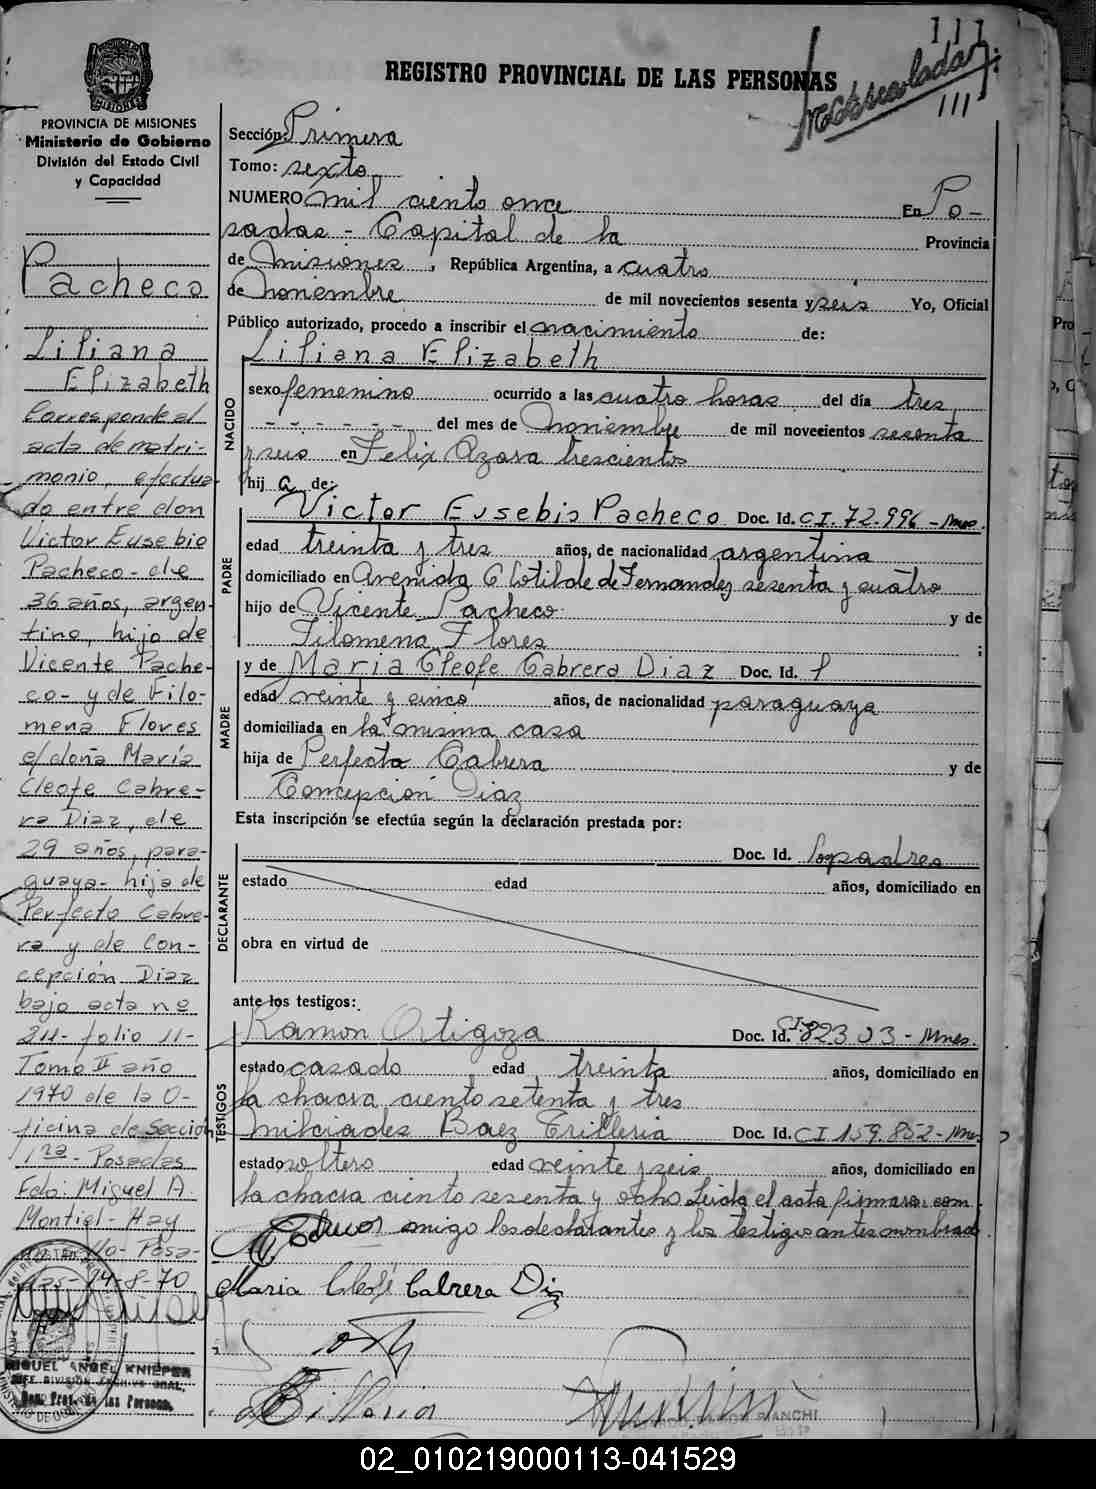 111
REGISTRO PROVINCIAL DE LAS PERSONAS
111
PROVINCIA DE MISIONES
Ministerio de Gobierno
División del Estado Civil
y Capacidad
Pacheco
Liliana
Elizabeth
Corresponde al
acta de matri-
monio, efectua-
do entre don
Victor Eusebio
Pacheco - de
36 años, argen-
tino, hijo de
Vicente Pache-
co - y de Filo-
mena Flores
c/ doña María
Cleofe Cabre-
ra Diaz, de
29 años, para-
guaya - hija de
Perfecto Cabre-
ra y de Con-
cepción Diaz
bajo acta nº
211 - folio 11 -
Tomo II año
1970 de la O-
ficina de Sección
1ra - Posadas
Fdo: Miguel A.
Montiel - Hay
Posa-
das - 24-8-70
MIGUEL ANGEL KNIEPER
JEFE DIVISION ARCHIVO GRAL.
Reg. Prov. de las Personas
Sección: Primera
Tomo: sexto
NUMERO mil ciento once En Po-
sadas - Capital de la Provincia
de Misiones, República Argentina, a cuatro
de noviembre de mil novecientos sesenta y seis Yo, Oficial
Público autorizado, procedo a inscribir el nacimiento de:
NACIDO
Liliana Elizabeth
sexo femenino ocurrido a las cuatro horas del día tres
- - - - - - del mes de noviembre de mil novecientos sesenta
y seis en Felix Azara trescientos
hij a de:
PADRE
Victor Eusebio Pacheco Doc. Id. C.I. 72.996 - Mnes.
edad treinta y tres años, de nacionalidad argentina
domiciliado en Avenida Clotilde de Fernandez sesenta y cuatro
hijo de Vicente Pacheco y de
Filomena Flores ;
MADRE
y de Maria Cleofe Cabrera Diaz Doc. Id.
edad veinte y cinco años, de nacionalidad paraguaya
domiciliada en la misma casa
hija de Perfecto Cabrera y de
Concepción Diaz
Esta inscripción se efectúa según la declaración prestada por:
DECLARANTE
Doc. Id. los padres
estado edad años, domiciliado en
obra en virtud de
ante los testigos:
TESTIGOS
Ramon Ortigoza Doc. Id. C.I. 82303 - Mnes.
estado casado edad treinta años, domiciliado en
la chacra ciento setenta y tres
Milciades Baez Doc. Id. C I 159.852 - Mnes
estado soltero edad veinte y seis años, domiciliado en
la chacra ciento sesenta y ocho Leida el acta firmaron com
migo los declarantes y los testigos antes nombrados.
Maria Cleofé Cabrera Diaz
02_010219000113-041529